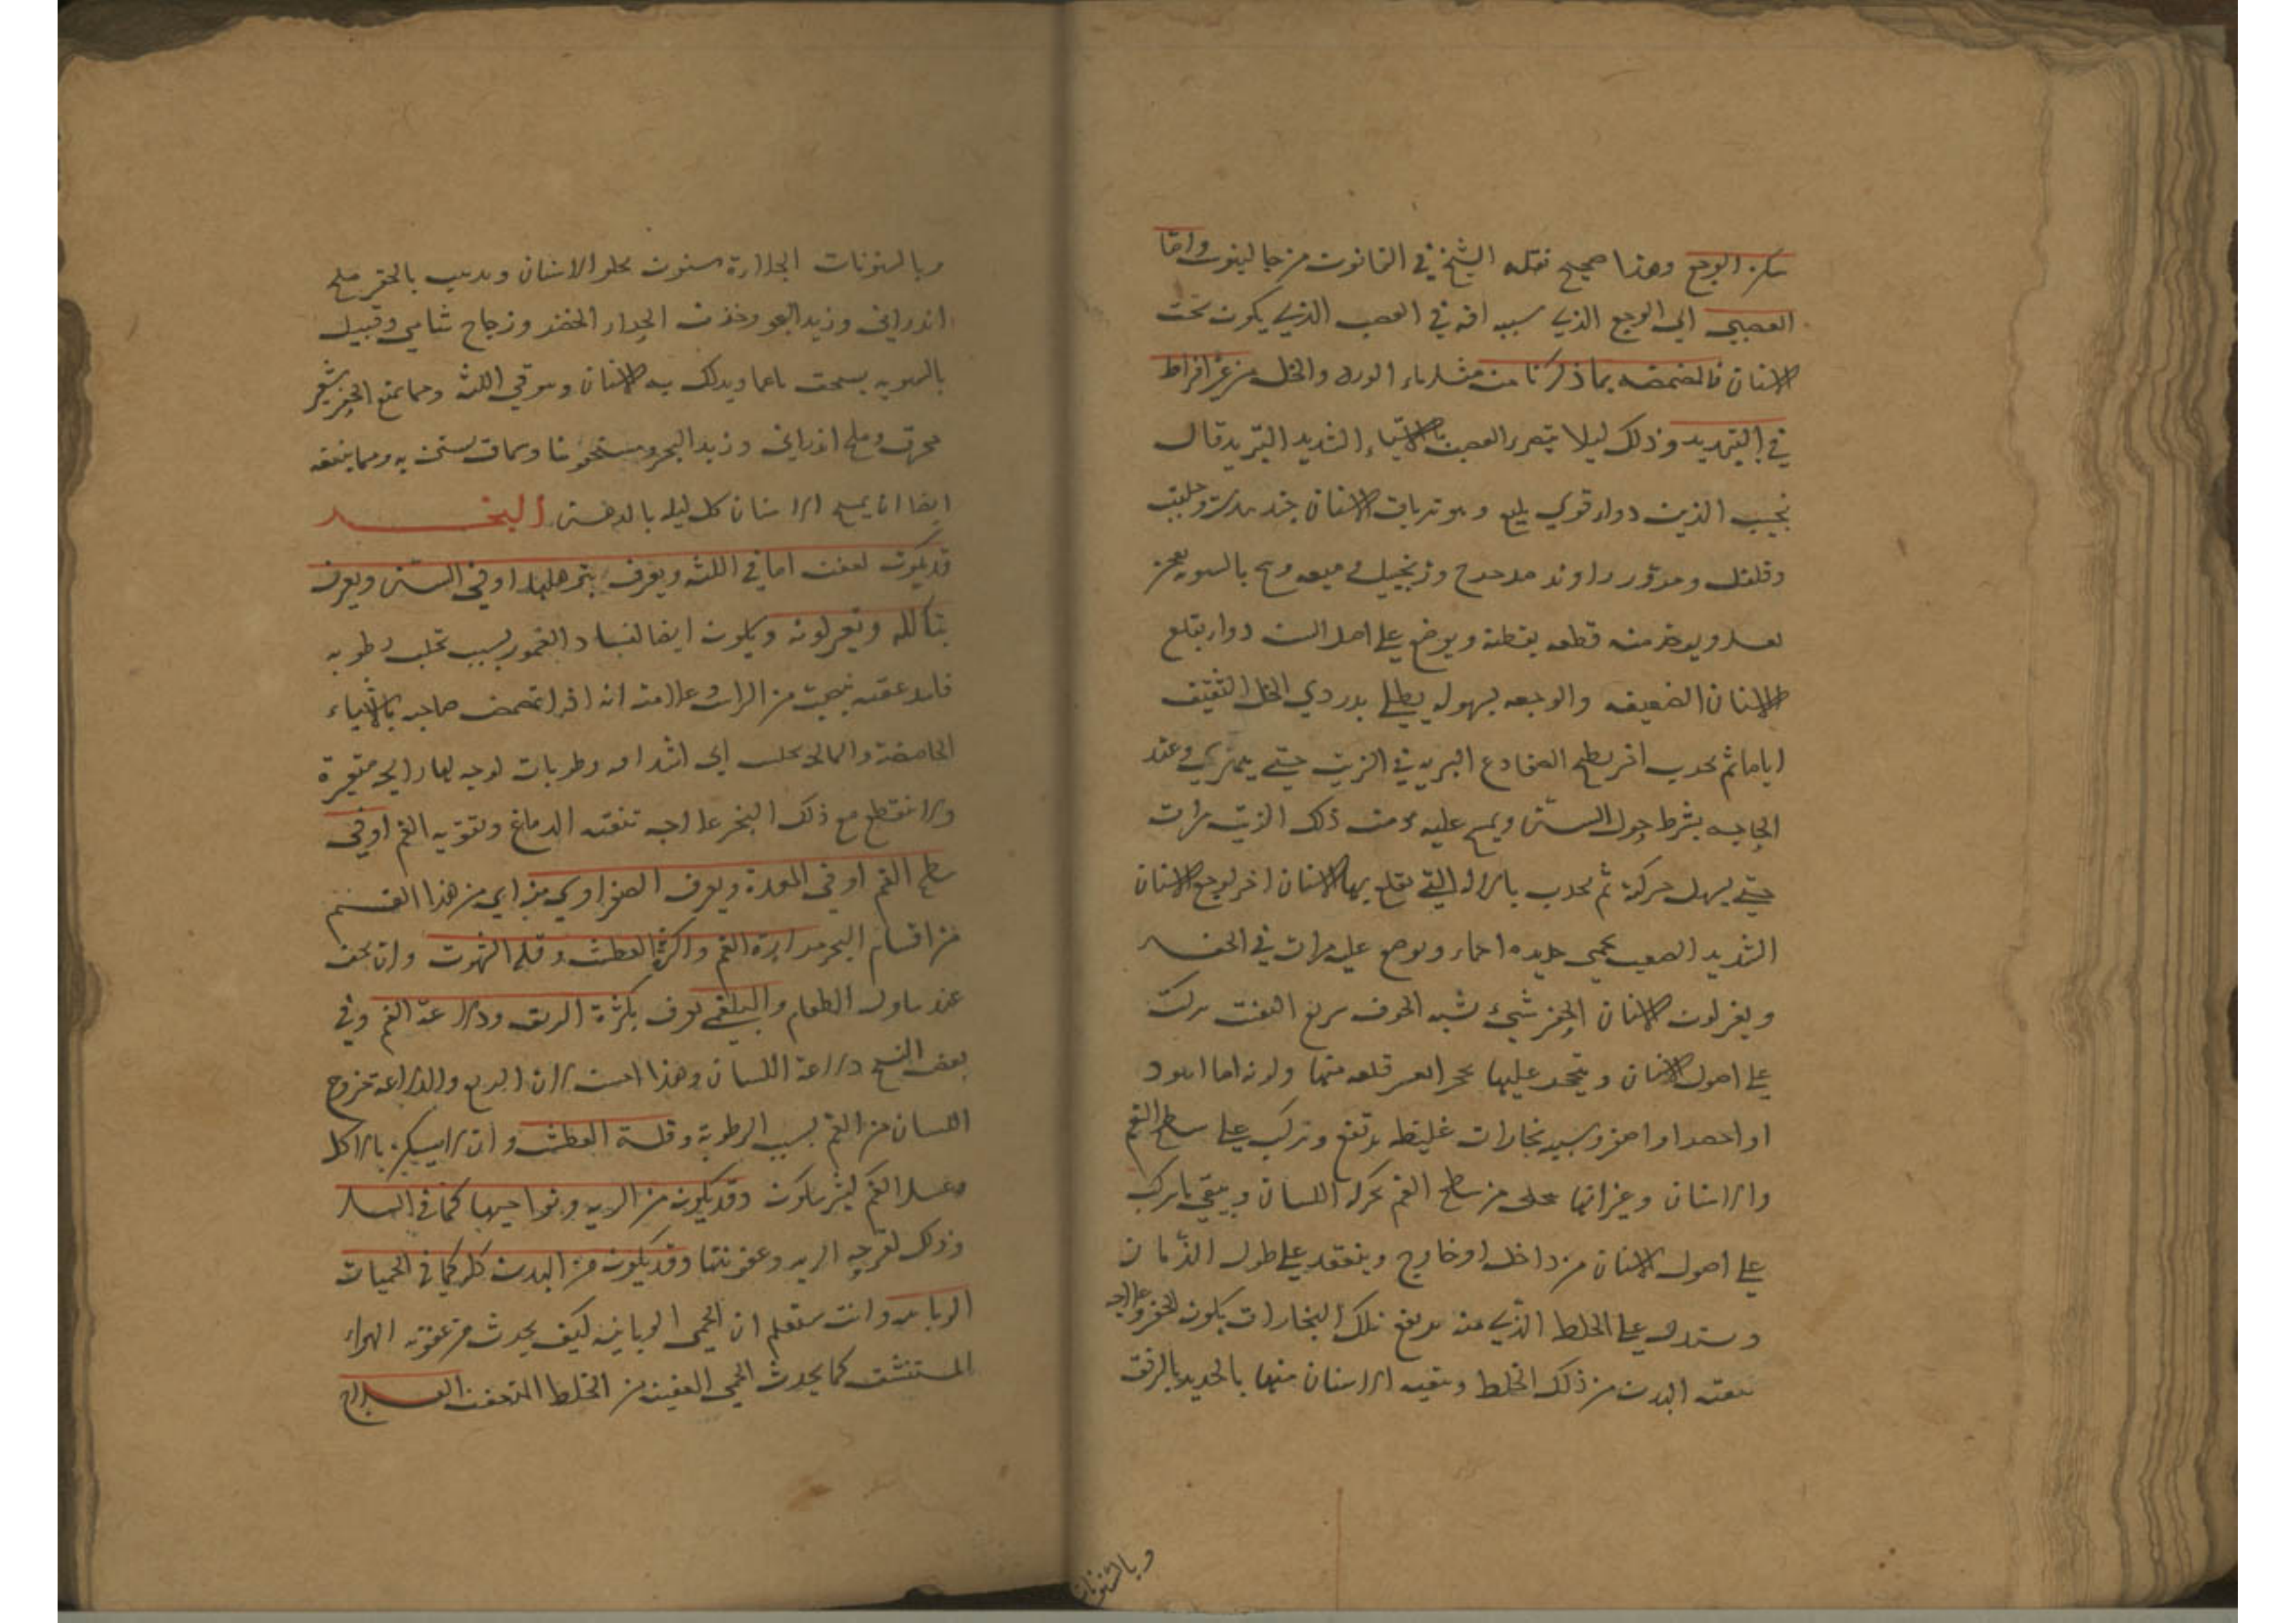 سكن الوجع وهذا صحيح نقله الشيخ في القانون من جالينوس واما
العصبي اي الوجع الذي سببه افة في العصب الذي يكون تحت
الاسنان فالمضمضه بما ذكرنا من مثل ماء الورد والخل من غير افراط
في التبريد وذلك ليلا يتضرر العصب بالاشياء الشديد التبريد قال
نجيب الدين دواء قوي بليغ وهو ترياق الاسنان جندبيدستر وحلتيت
وفلفل ومدور راوند مدحرج وزنجبيل ميعه بالسويه يعجن
بعسل ويوخذ منه قطعه بقطنه ويوضع على اصل السن دواء يقلع
الاسنان الضعيفه والوجعه بسهوله يطلى بدردي الخل الثقيف
اياما ثم يجذب اخر يطبخ الضفادع البريه في الزيت حتى يتهرى وعند
الحاجه يشرط حول السن ويمسح عليه من ذلك الزيت مرات
حتى يسهل حركته ثم يجذب بالاله التي يقلع بها الاسنان اخر لوجع الاسنان
الشديد الصعب يحمى حديده احماء ويوضع عليه مرات في
ويعزلون الاسنان الحفر شيء شبه الخزف سريع التفتت يركب
على اصول الاسنان ويتحجر عليها تحجرا يعسر قلعه منها ولونه اما اسود
او احمر او اصفر وسببه بخارات غليظه يرتفع ويتركب على سطح الفم
والاسنان وغيرانها من سطح الفم بحركه اللسان ويبقى ما يركب
على اصول الاسنان من داخل او خارج وينعقد على طول الزمان
ويستدل على الخلط الذي منه يرتفع تلك البخارات بلون الحفر وعلاجه
تنقيه البدن من ذلك الخلط وتنقيه الاسنان منها بالحديد بالرفق
وبالسنونات
وبالسنونات الجلاءة سنون يجلو الاسنان ويذهب بالحفر ملح
اندراني وزبد البحر وخزف الجدار الخضر وزجاج شامي وقنبيل
بالسويه يسحق ناعما ويدلك به الاسنان ويتوقى اللثه ومما يمنع الحفر شعير
محرق وملح اندراني وزبد البحر وسماق يستن به ومما ينفعه
ايضا ان يمسح الاسنان كل ليله بالدهن البخر
قد يكون لعفن اما في اللثه ويعرف بترهلها او في السن ويعرف
بتاكله وتغير لونه ويكون ايضا لفساد العمور بسبب تحلب رطوبه
فاسده عفنه ينصب من الراس وعلامته انه اذا تمضمض صاحبه بالاشياء
الحامضة والمالحه تحلب الى رطوبات لزجه لها رايحه متغيرة
وانقطع مع ذلك البخر علاجه تنقيه الدماغ وتقويه الفم او في
سطح الفم او في المعدة ويعرف الصفراوي منه اي من هذا القسم
من اقسام البخر مرارة الفم وكثرة العطش وقله الشهوة وان يخف
عند تناول الطعام والبلغمي يعرف بكثرة الريق ودلاعة الفم وفي
بعض النسخ دلاعة اللسان وهذا احسن لان الدلع والدلاعة خروج
اللسان من الفم بسبب الرطوبة وقلة العطش وان لا يسكن بالاكل
وغسل الفم وقد يكون من الريه ونواحيها كما في السل
وذلك لقرحه الريه وعفونتها وقد يكون من البدن كله كما في الحميات
الوبائيه وانت ستعلم ان الحمى الوبائيه كيف يحدث من عفونه الهواء
المستنشق كما يحدث الحمى العفنيه من الخلط المتعفن العلاج